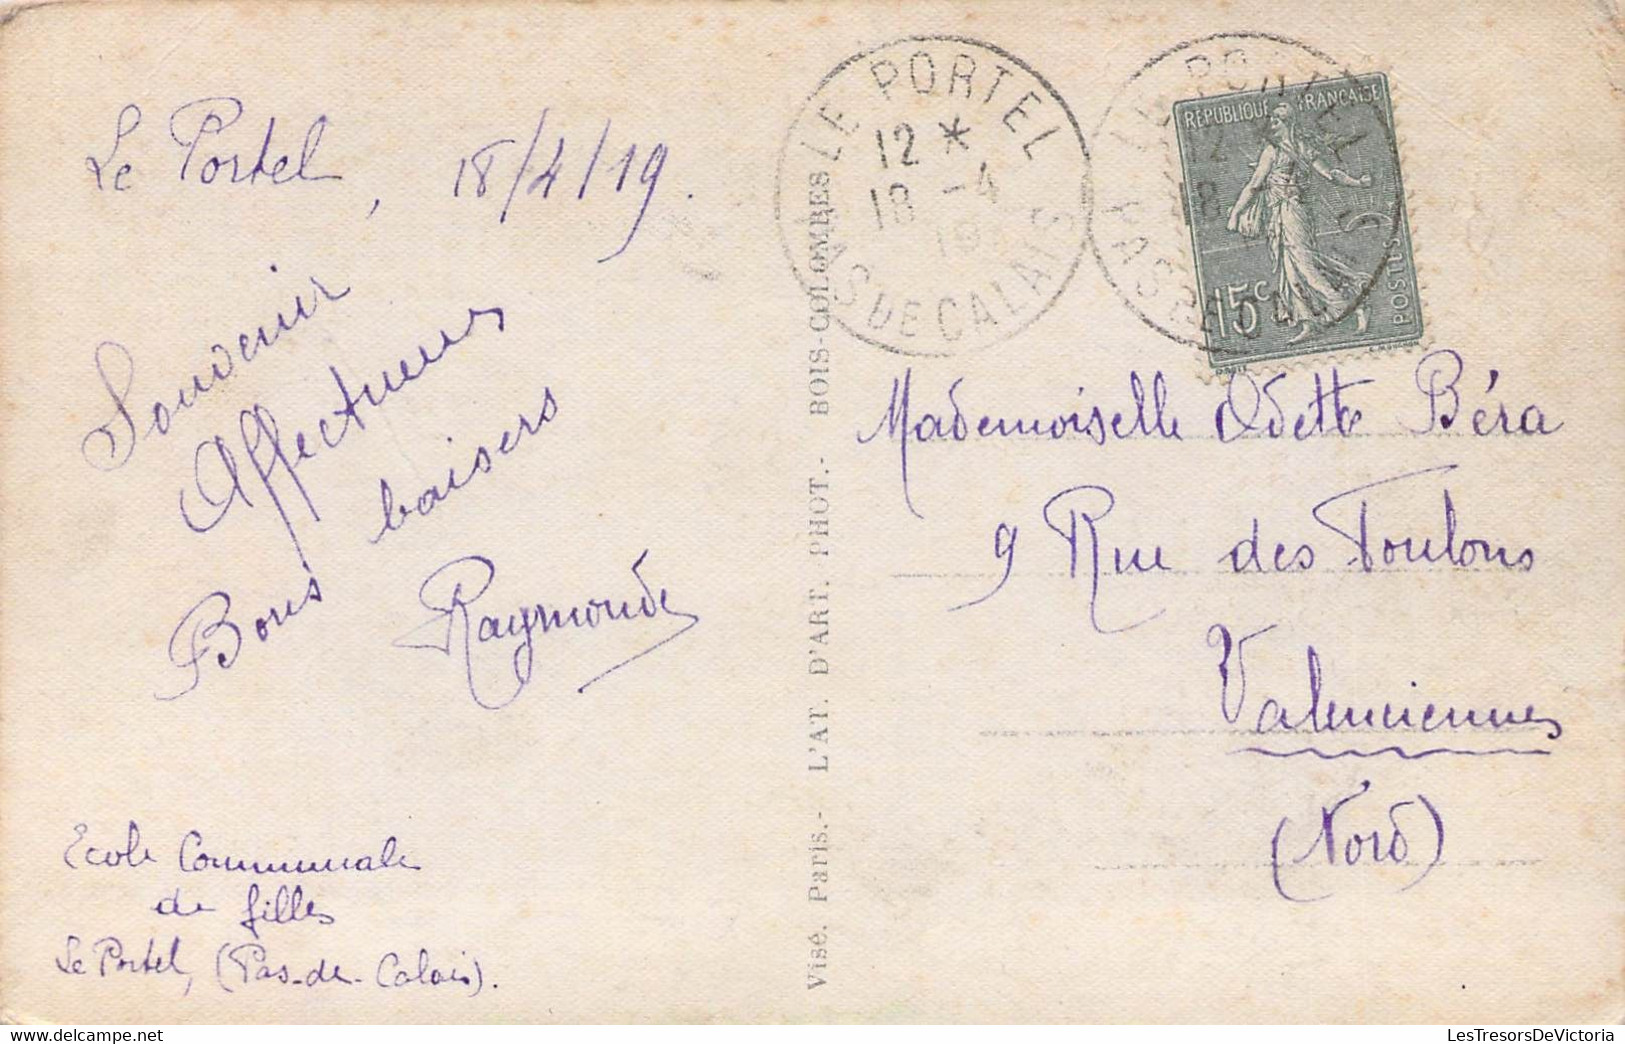 Le Portel, 18/4/19.
Souvenir
Affectueux
Bons baisers
Raymonde
Ecole Communale
de filles
Le Portel, (Pas-de-Calais).
Visé. Paris.- L'AT. D'ART. PHOT.- BOIS-COLOMBES
LE PORTEL
12 *
18 -4
19
PAS DE CALAIS
LE PORTEL
12 *
18 -4
PAS DE CALAIS
RÉPUBLIQUE FRANÇAISE
15c
POSTES
Mademoiselle Odette Béra
9 Rue des Foulons
Valenciennes
(Nord)
LesTresorsDeVictoria